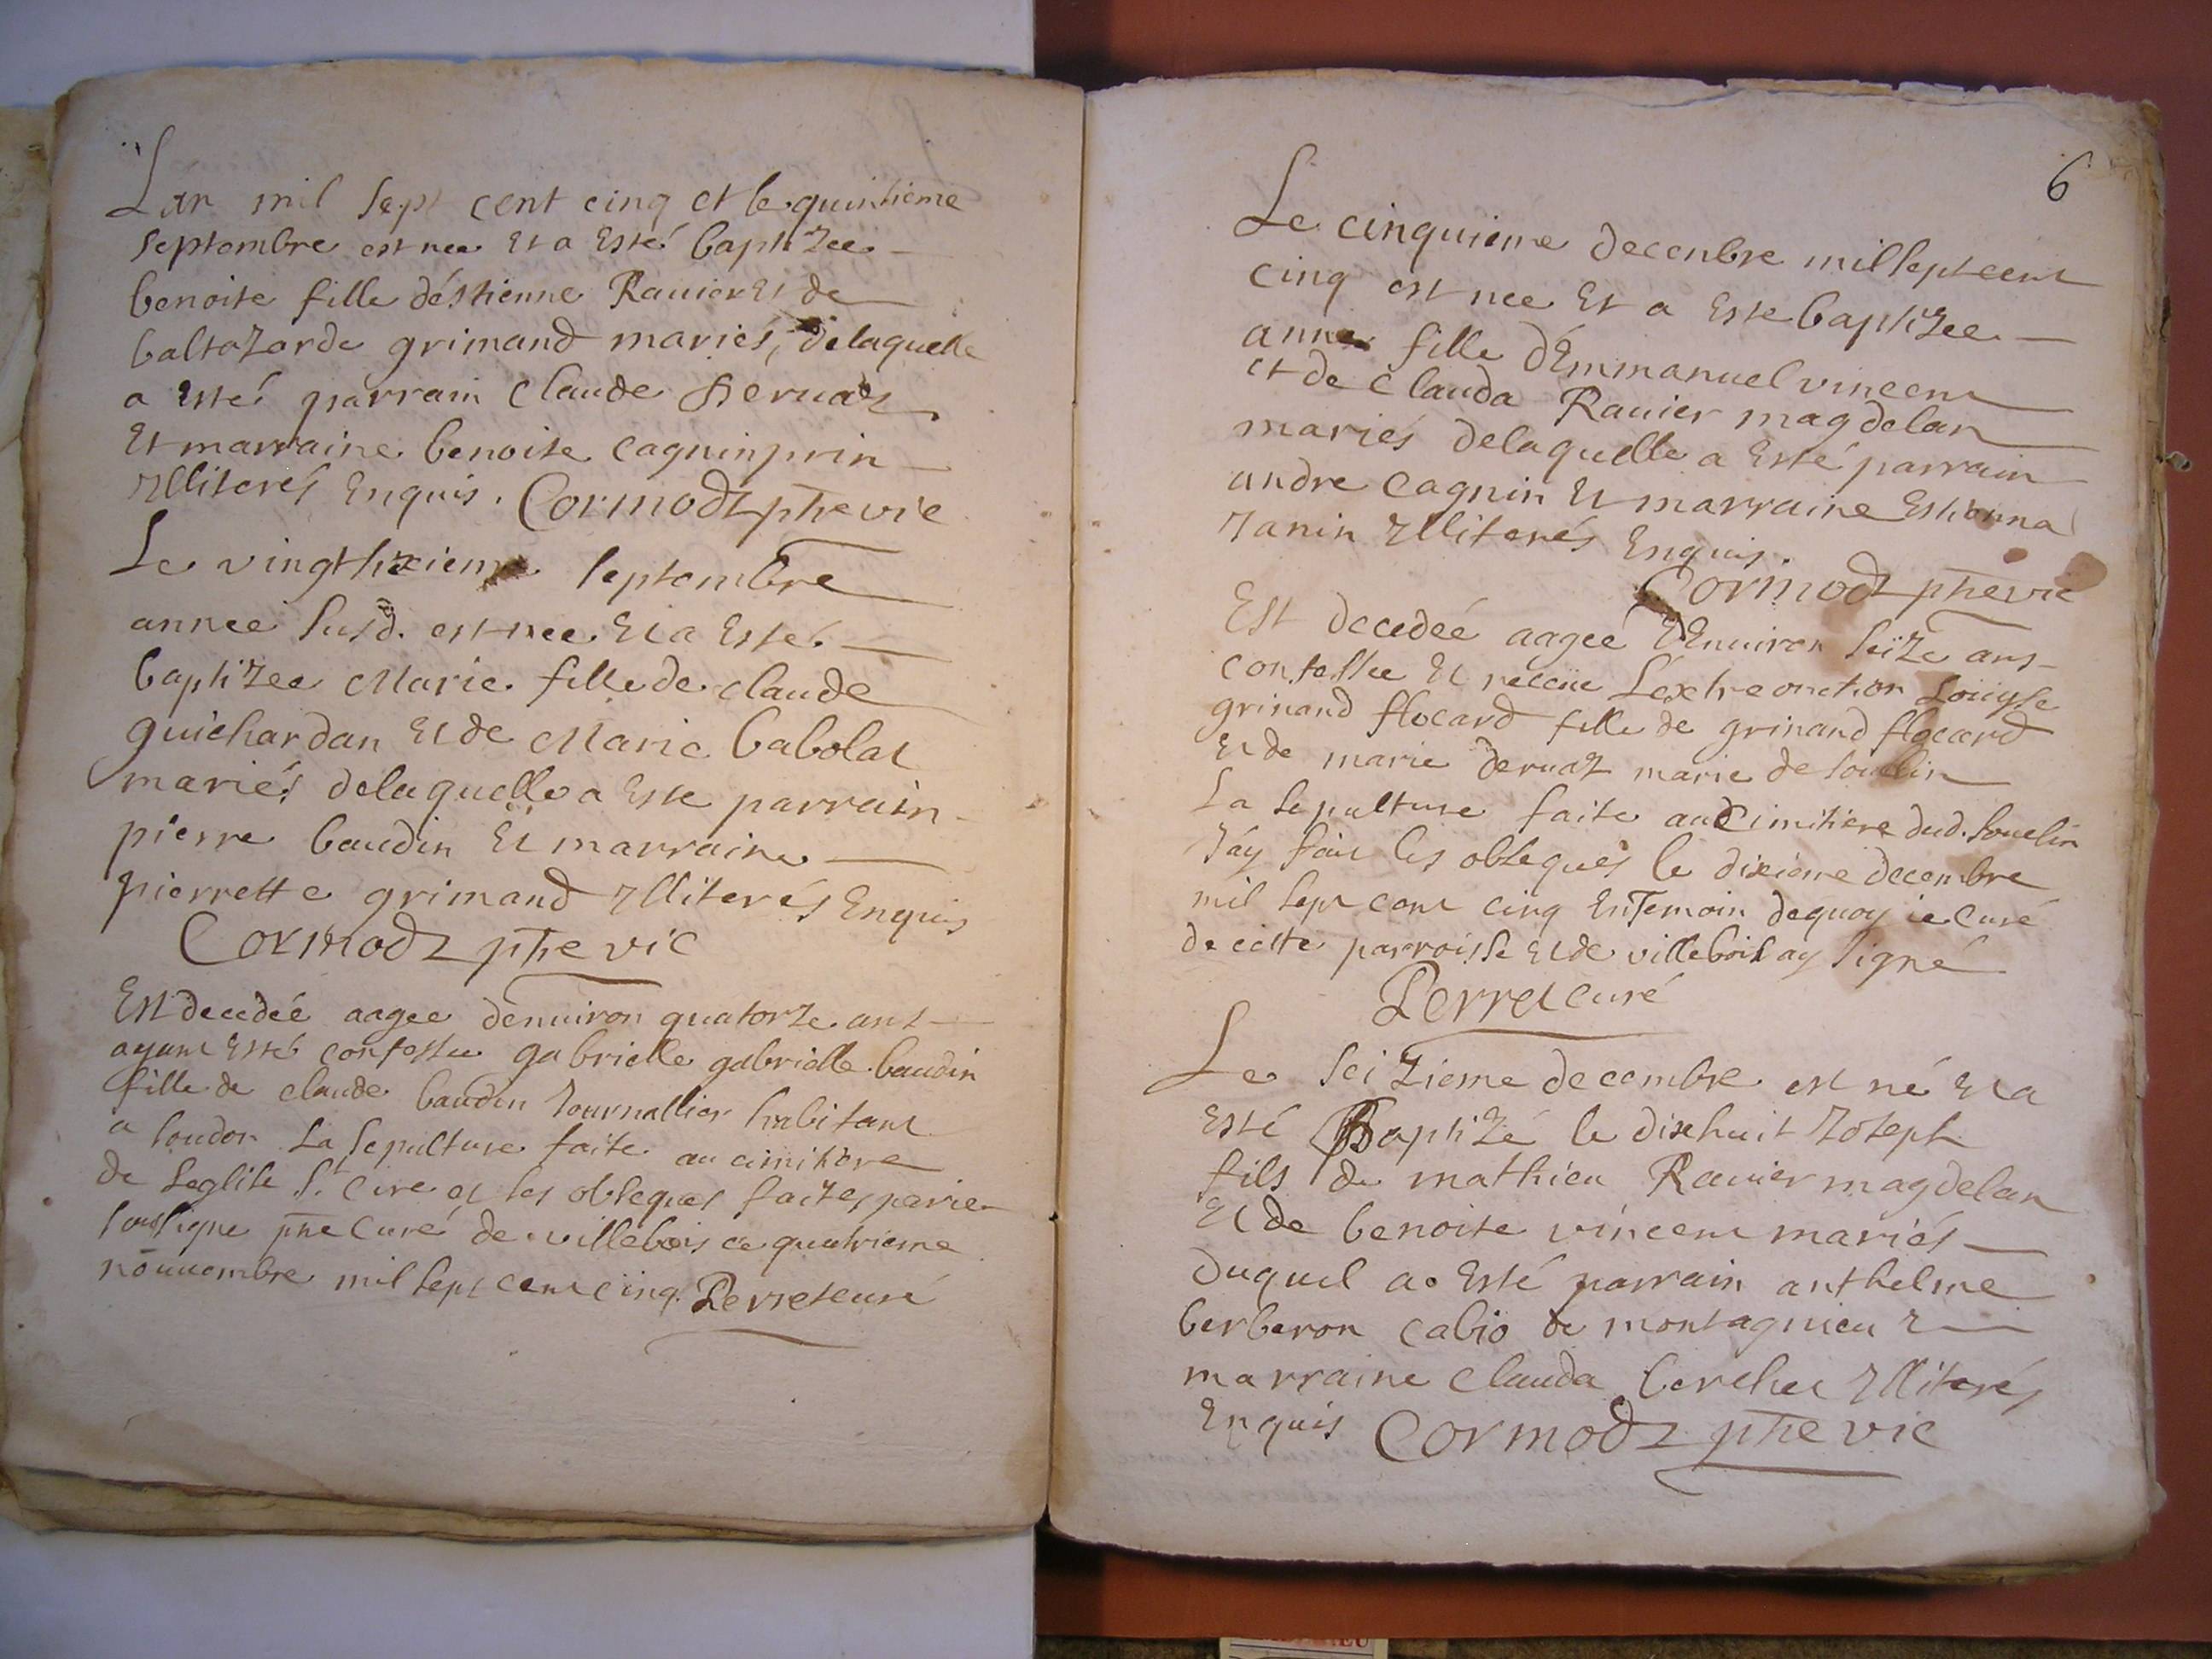 Lan mil sept cent cinq et le quinzieme
septembre est nee et a esté baptizee
benoite fille déstienne Ravier et de
baltazarde grimand mariés, delaquelle
a esté parrain Claude Dervaz
Et marraine benoite cagninprin
Illiterés Enquis. Cormodz pbre vic
Le vingtsixieme septembre
annee susd. est nee Et a Esté
baptizee Marie fille de claude
guichardan Et de Marie babolat
mariés delaquelle a Esté parrain
pierre baudin Et marraine
pierrette grimand Illiterés Enquis
Cormodz pbre vic
Est decedée aagee denviron quatorze ans
ayant Esté confessee gabrielle gabrielle baudin
fille de claude baudin Journallier habitant
a soudon La sepulture faite au cimitiere
de Leglise St Cire et les obseques faites par ie
soussigne pbre Curé de villebois ce quatrieme
nouvembre mil sept cent cinq. Perret curé
6
Le cinquieme decenbre mil sept cent
cinq est nee Et a Esté baptizee
anne fille dEmmanuel vincent
et de Clauda Ravier magdelan
mariés delaquelle a Esté parrain
andre Cagnin Et marraine Estienna
Janin Illiterés Enquis.
Cormodz pbre vic
Est decedée aagée dEnviron seize ans
confessee Et receüe Léxtreonction Loüyse
grinand flocard fille de grinand flocard
Et de marie dervaz marie de souclin
La sepulture faite au Cimitiere dud. souclin
Jáy fait les obseques le dixieme decembre
mil sept cent cinq En Temoin dequoy ie Curé
de cette parroisse Et de villebois ay signé
Perret curé
Le seizieme decembre est né Et a
Esté Baptizé le dixhuit Joseph
fils de mathieu Ravier magdelan
Et de benoite vincent mariés
duquel a Esté parrain anthelme
berberon cabio de montagnieu &
marraine Clauda berchet Illiterés
Enquis Cormodz pbre vic